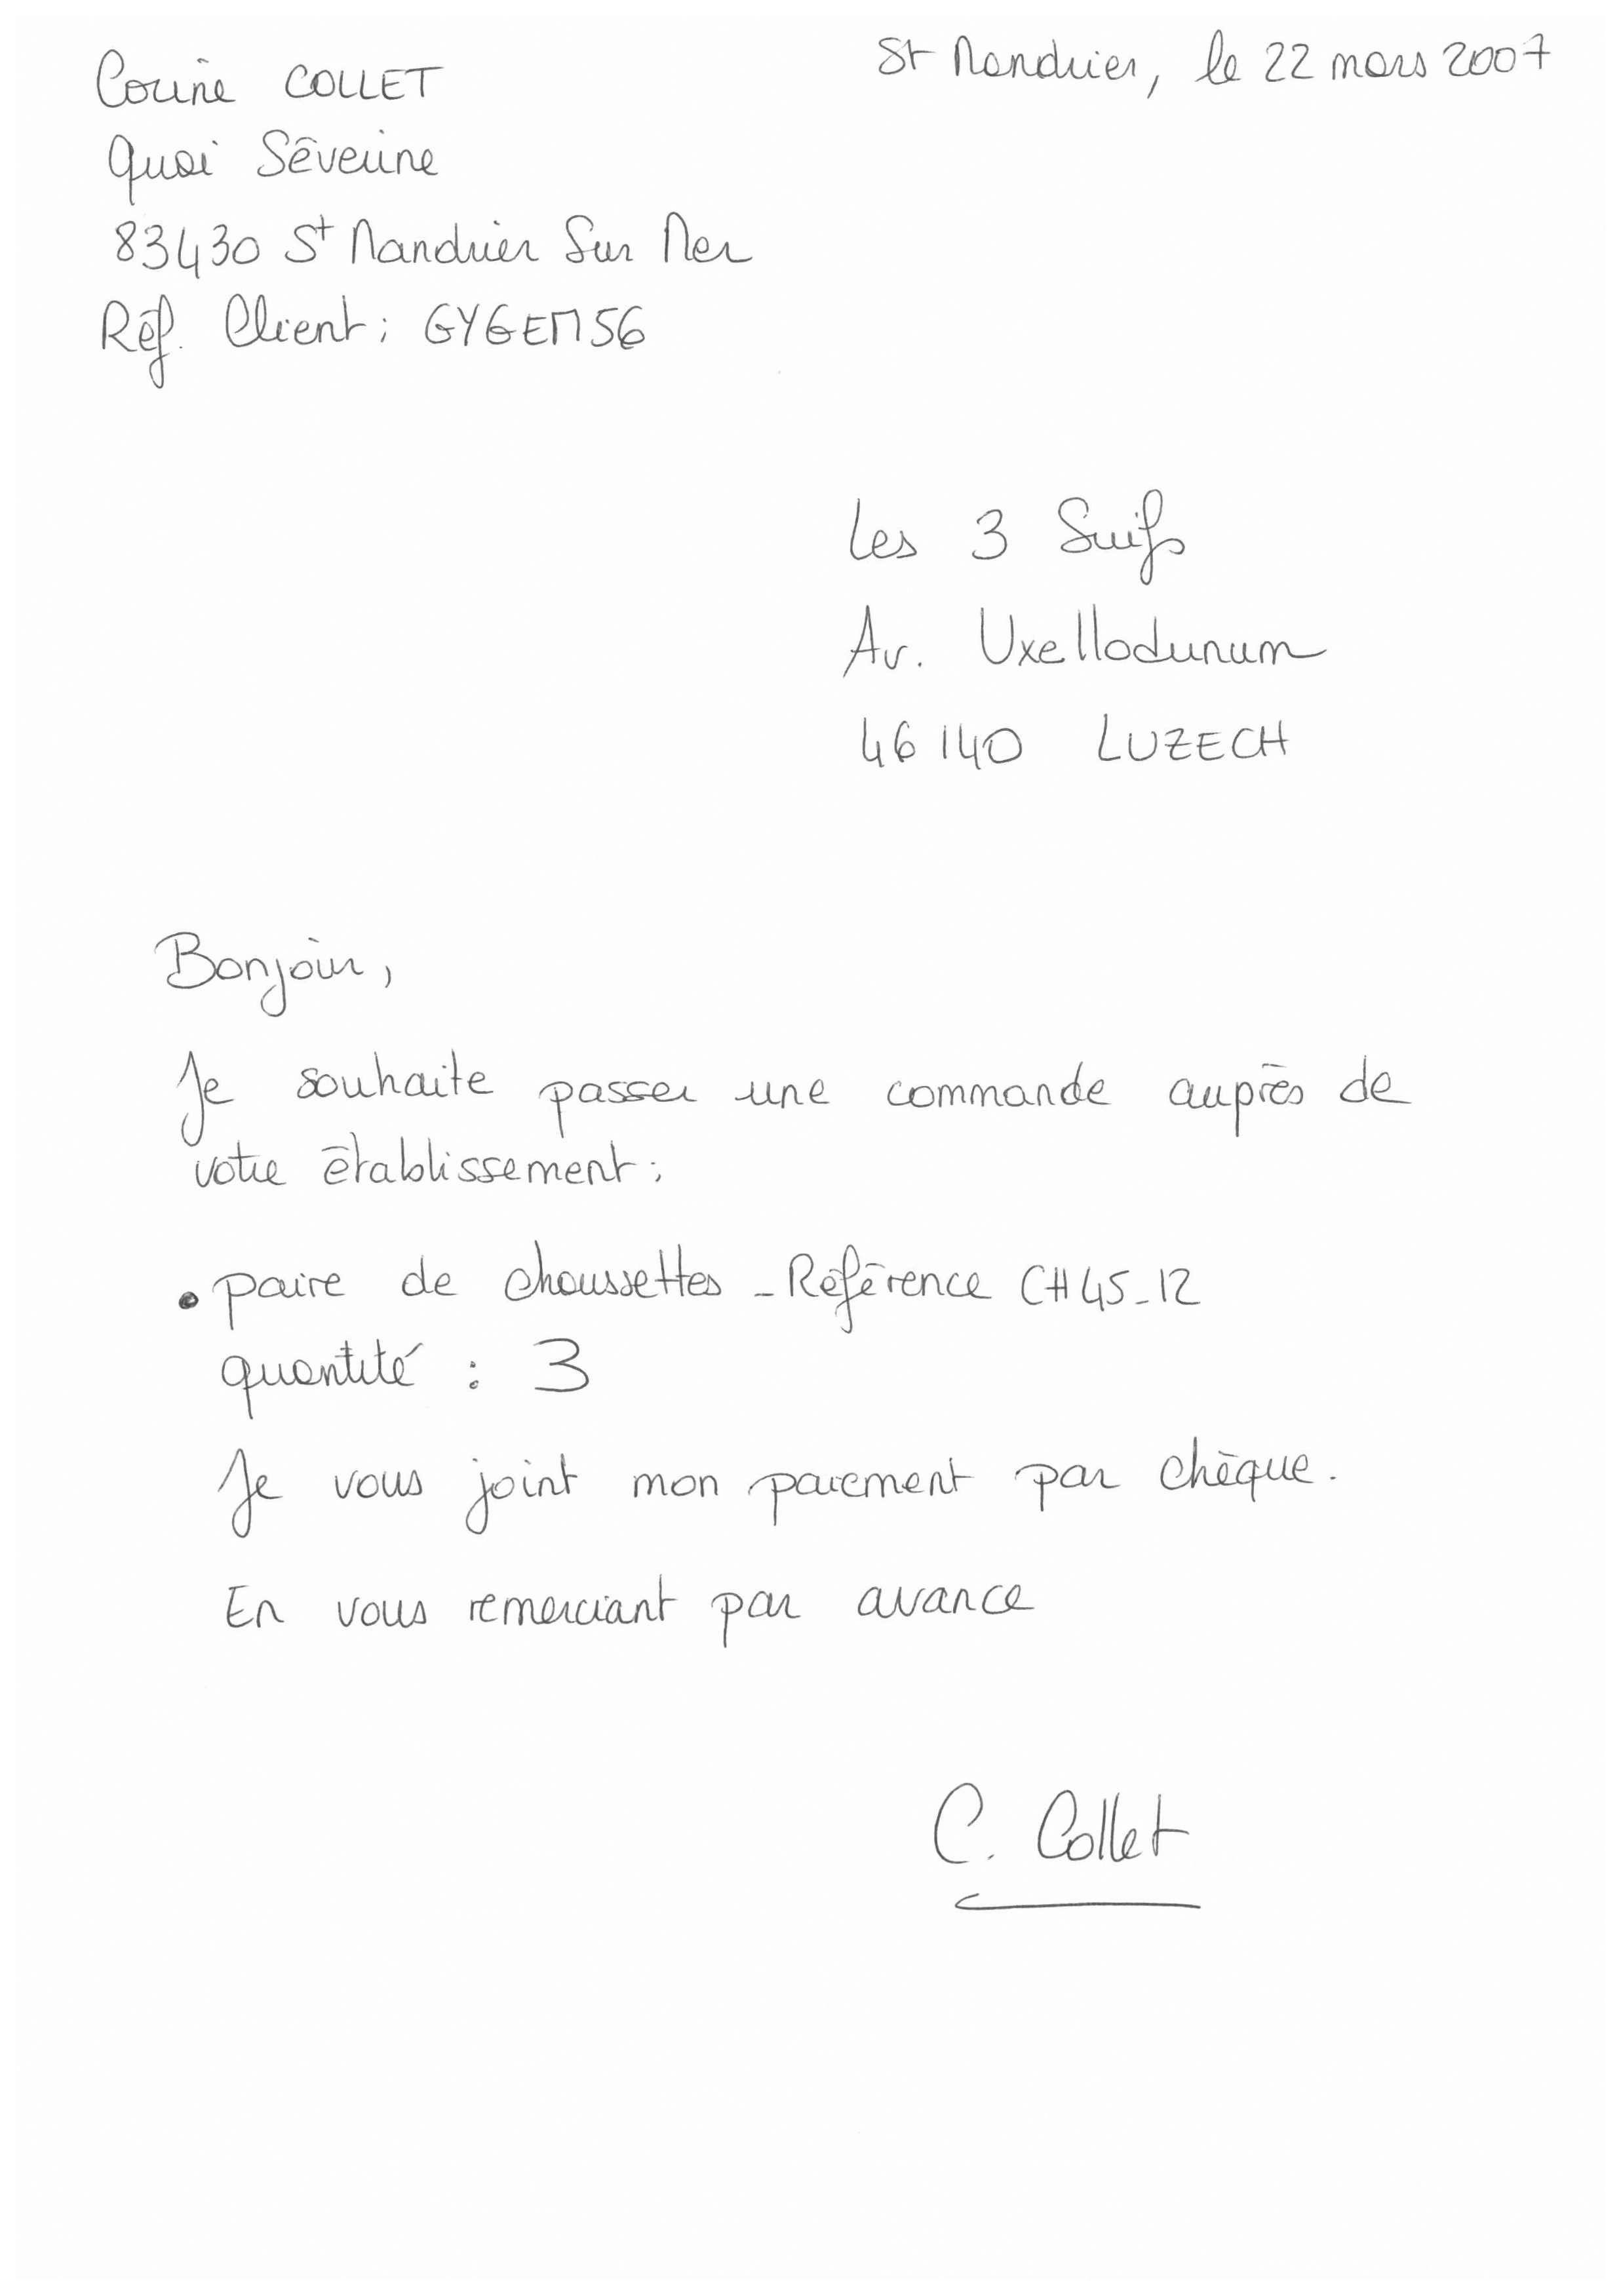 Corine COLLET
St Mandrier, le 22 mars 2007
Quai Séverine
83430 St Mandrier Sur Mer
Réf. Client : GYGEM56
Les 3 Suifs
Av. Uxellodunum
46140 LUZECH
Bonjour,
Je souhaite passer une commande auprès de
votre établissement :
• paire de choussettes - Référence CH45-12
quantité : 3
Je vous joint mon paiement par chèque.
En vous remerciant par avance
C. Collet